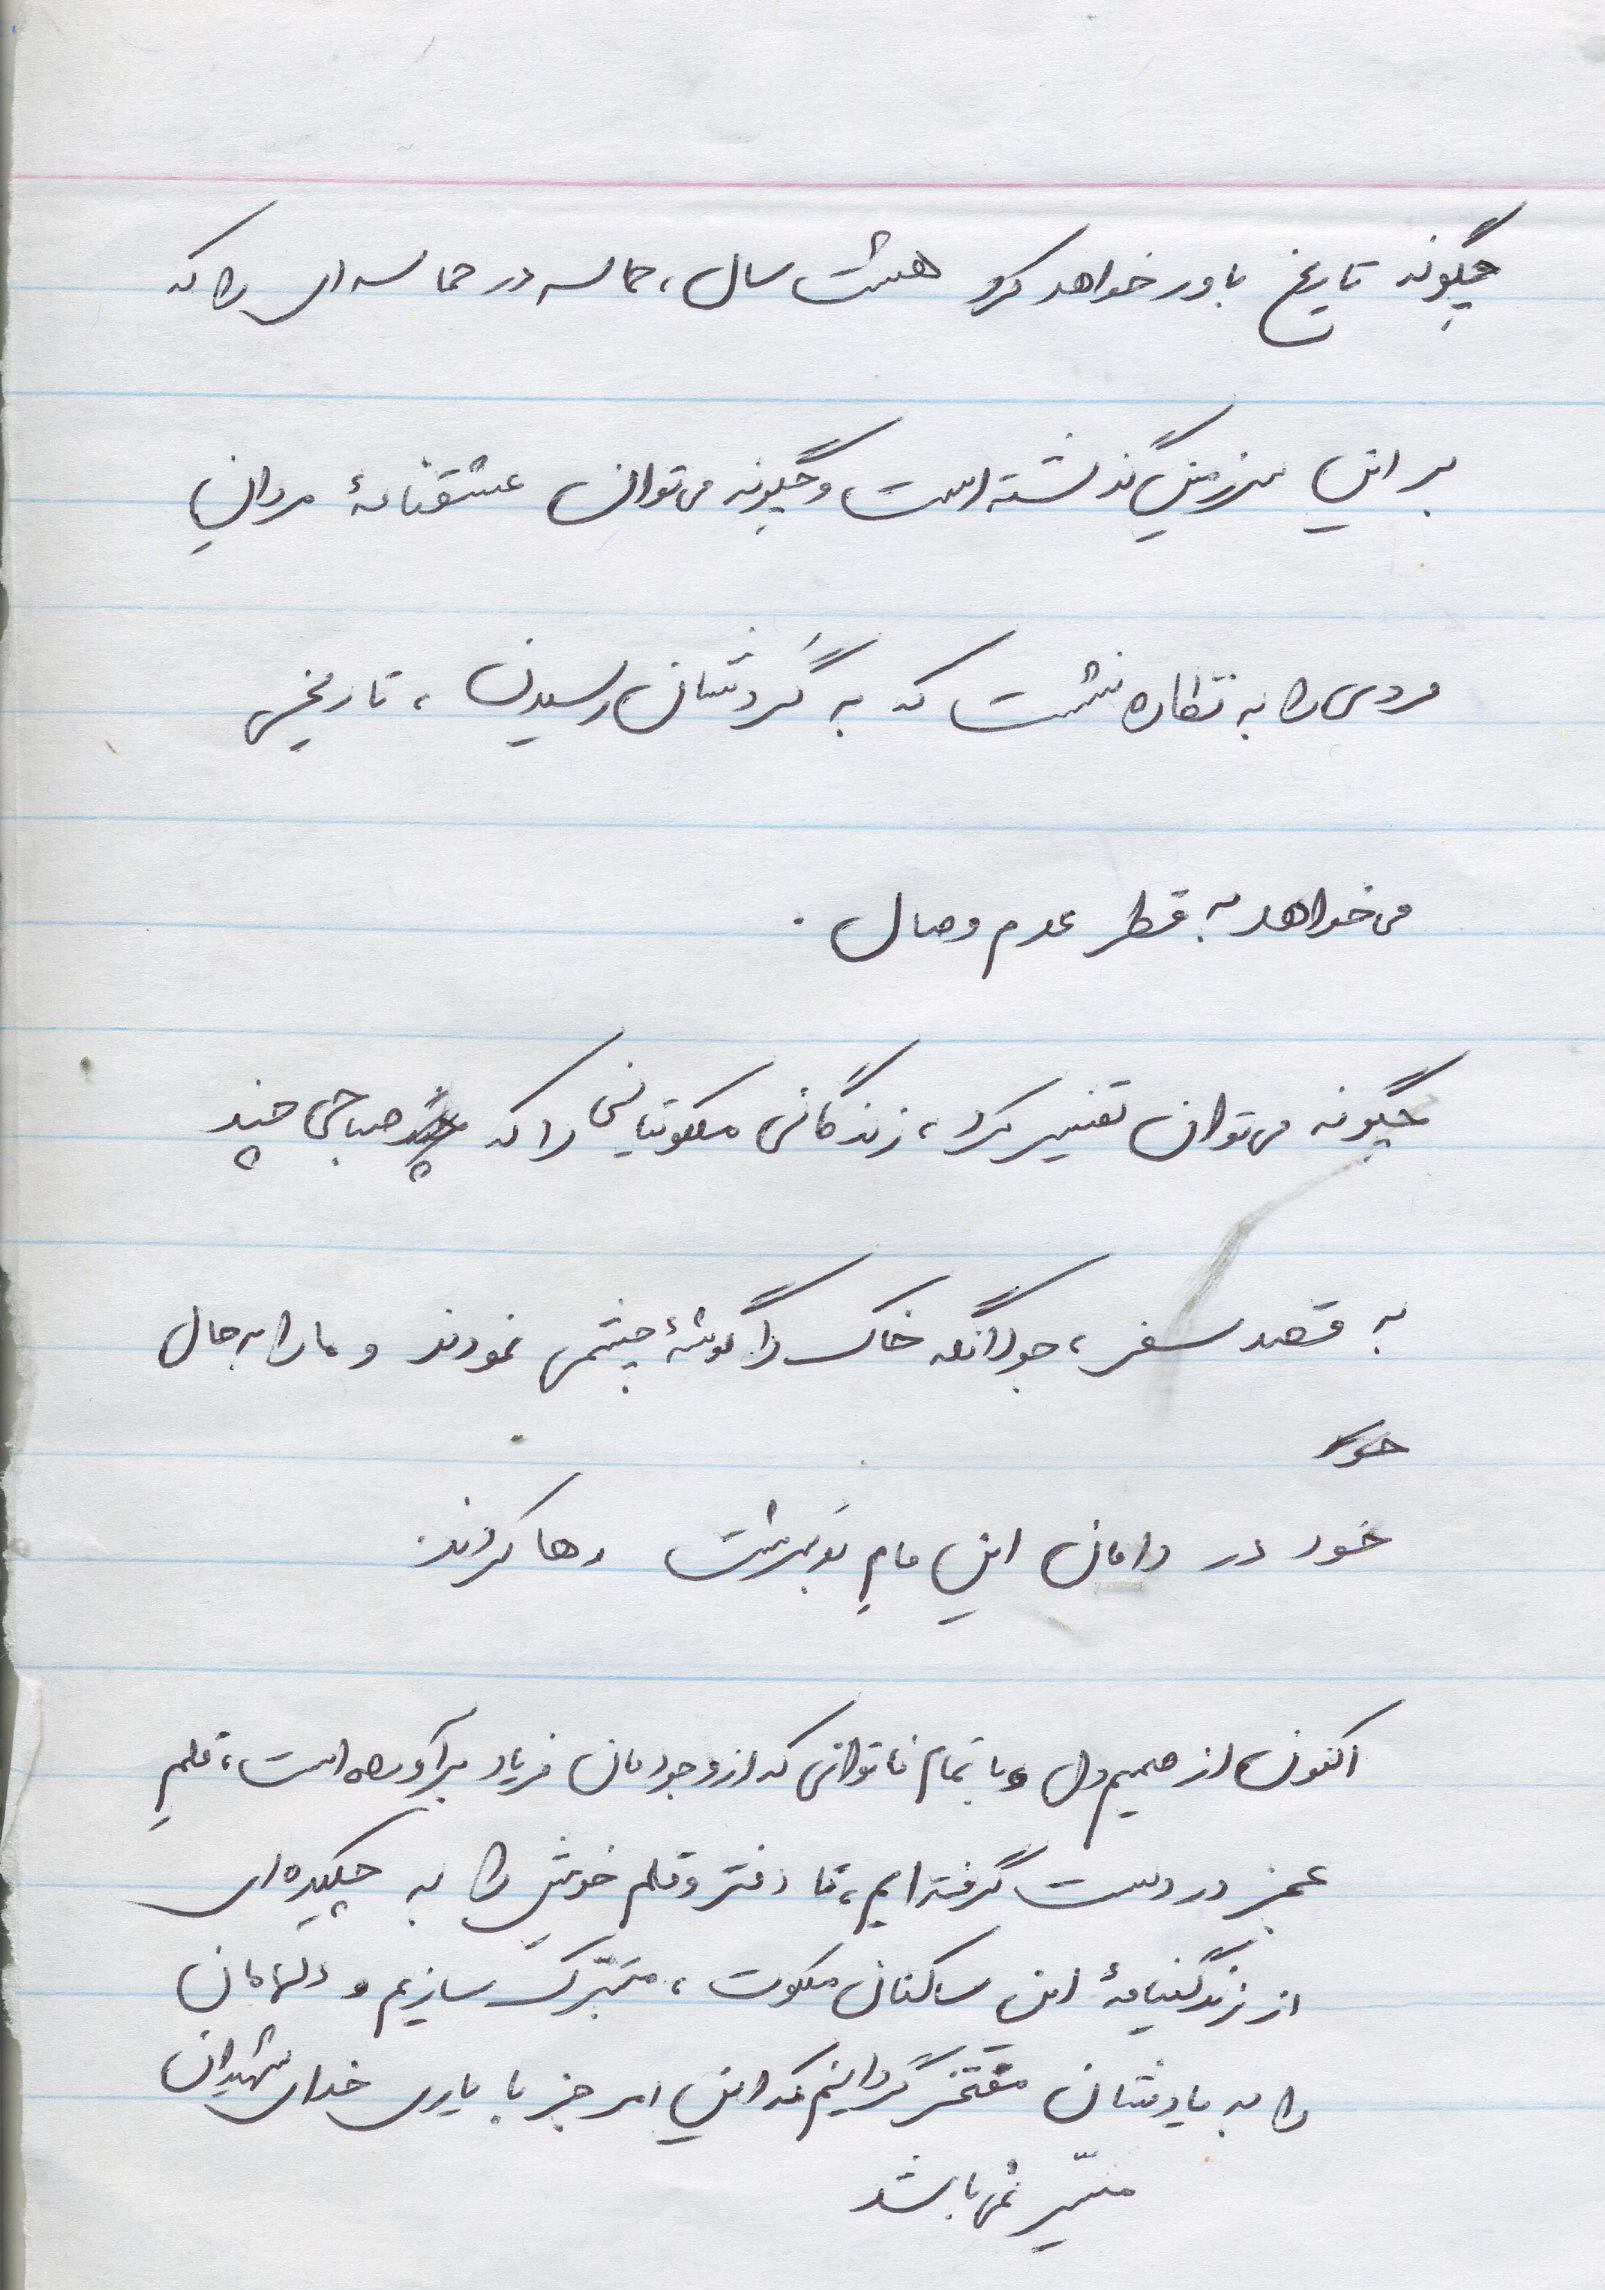 چگونه تاریخ باور خواهد کرد هشت سال، حماسه در حماسه‌ای را که
بر این سرزمین گذشته است و چگونه می‌توان عشقنامهٔ مردانِ
مردی را به نظاره نشست که به گَردشان رسیدن، تاریخی
می‌خواهد به قطر عدم وصال.
چگونه می‌توان تفسیر کرد، زندگانی ملکوتیانی را که صباحی چند
به قصد سفر، جولانگه خاک را گوشهٔ چشمی نمودند و ما را به حال
خود در دامان این مامِ رها کردند.
اکنون از صمیم دل و با تمام ناتوانی که از وجودمان فریاد برآورده است، قلمِ
عجز در دست گرفته‌ایم، تا دفتر و قلم خویش را به چکیده‌ای
از زندگینامهٔ این ساکنان ملکوت، متبرّک سازیم و دلهامان
را به یادشان مفتخر گردانیم که این امر جز با یاری خدای شهیدان
میّسر نمی‌باشد